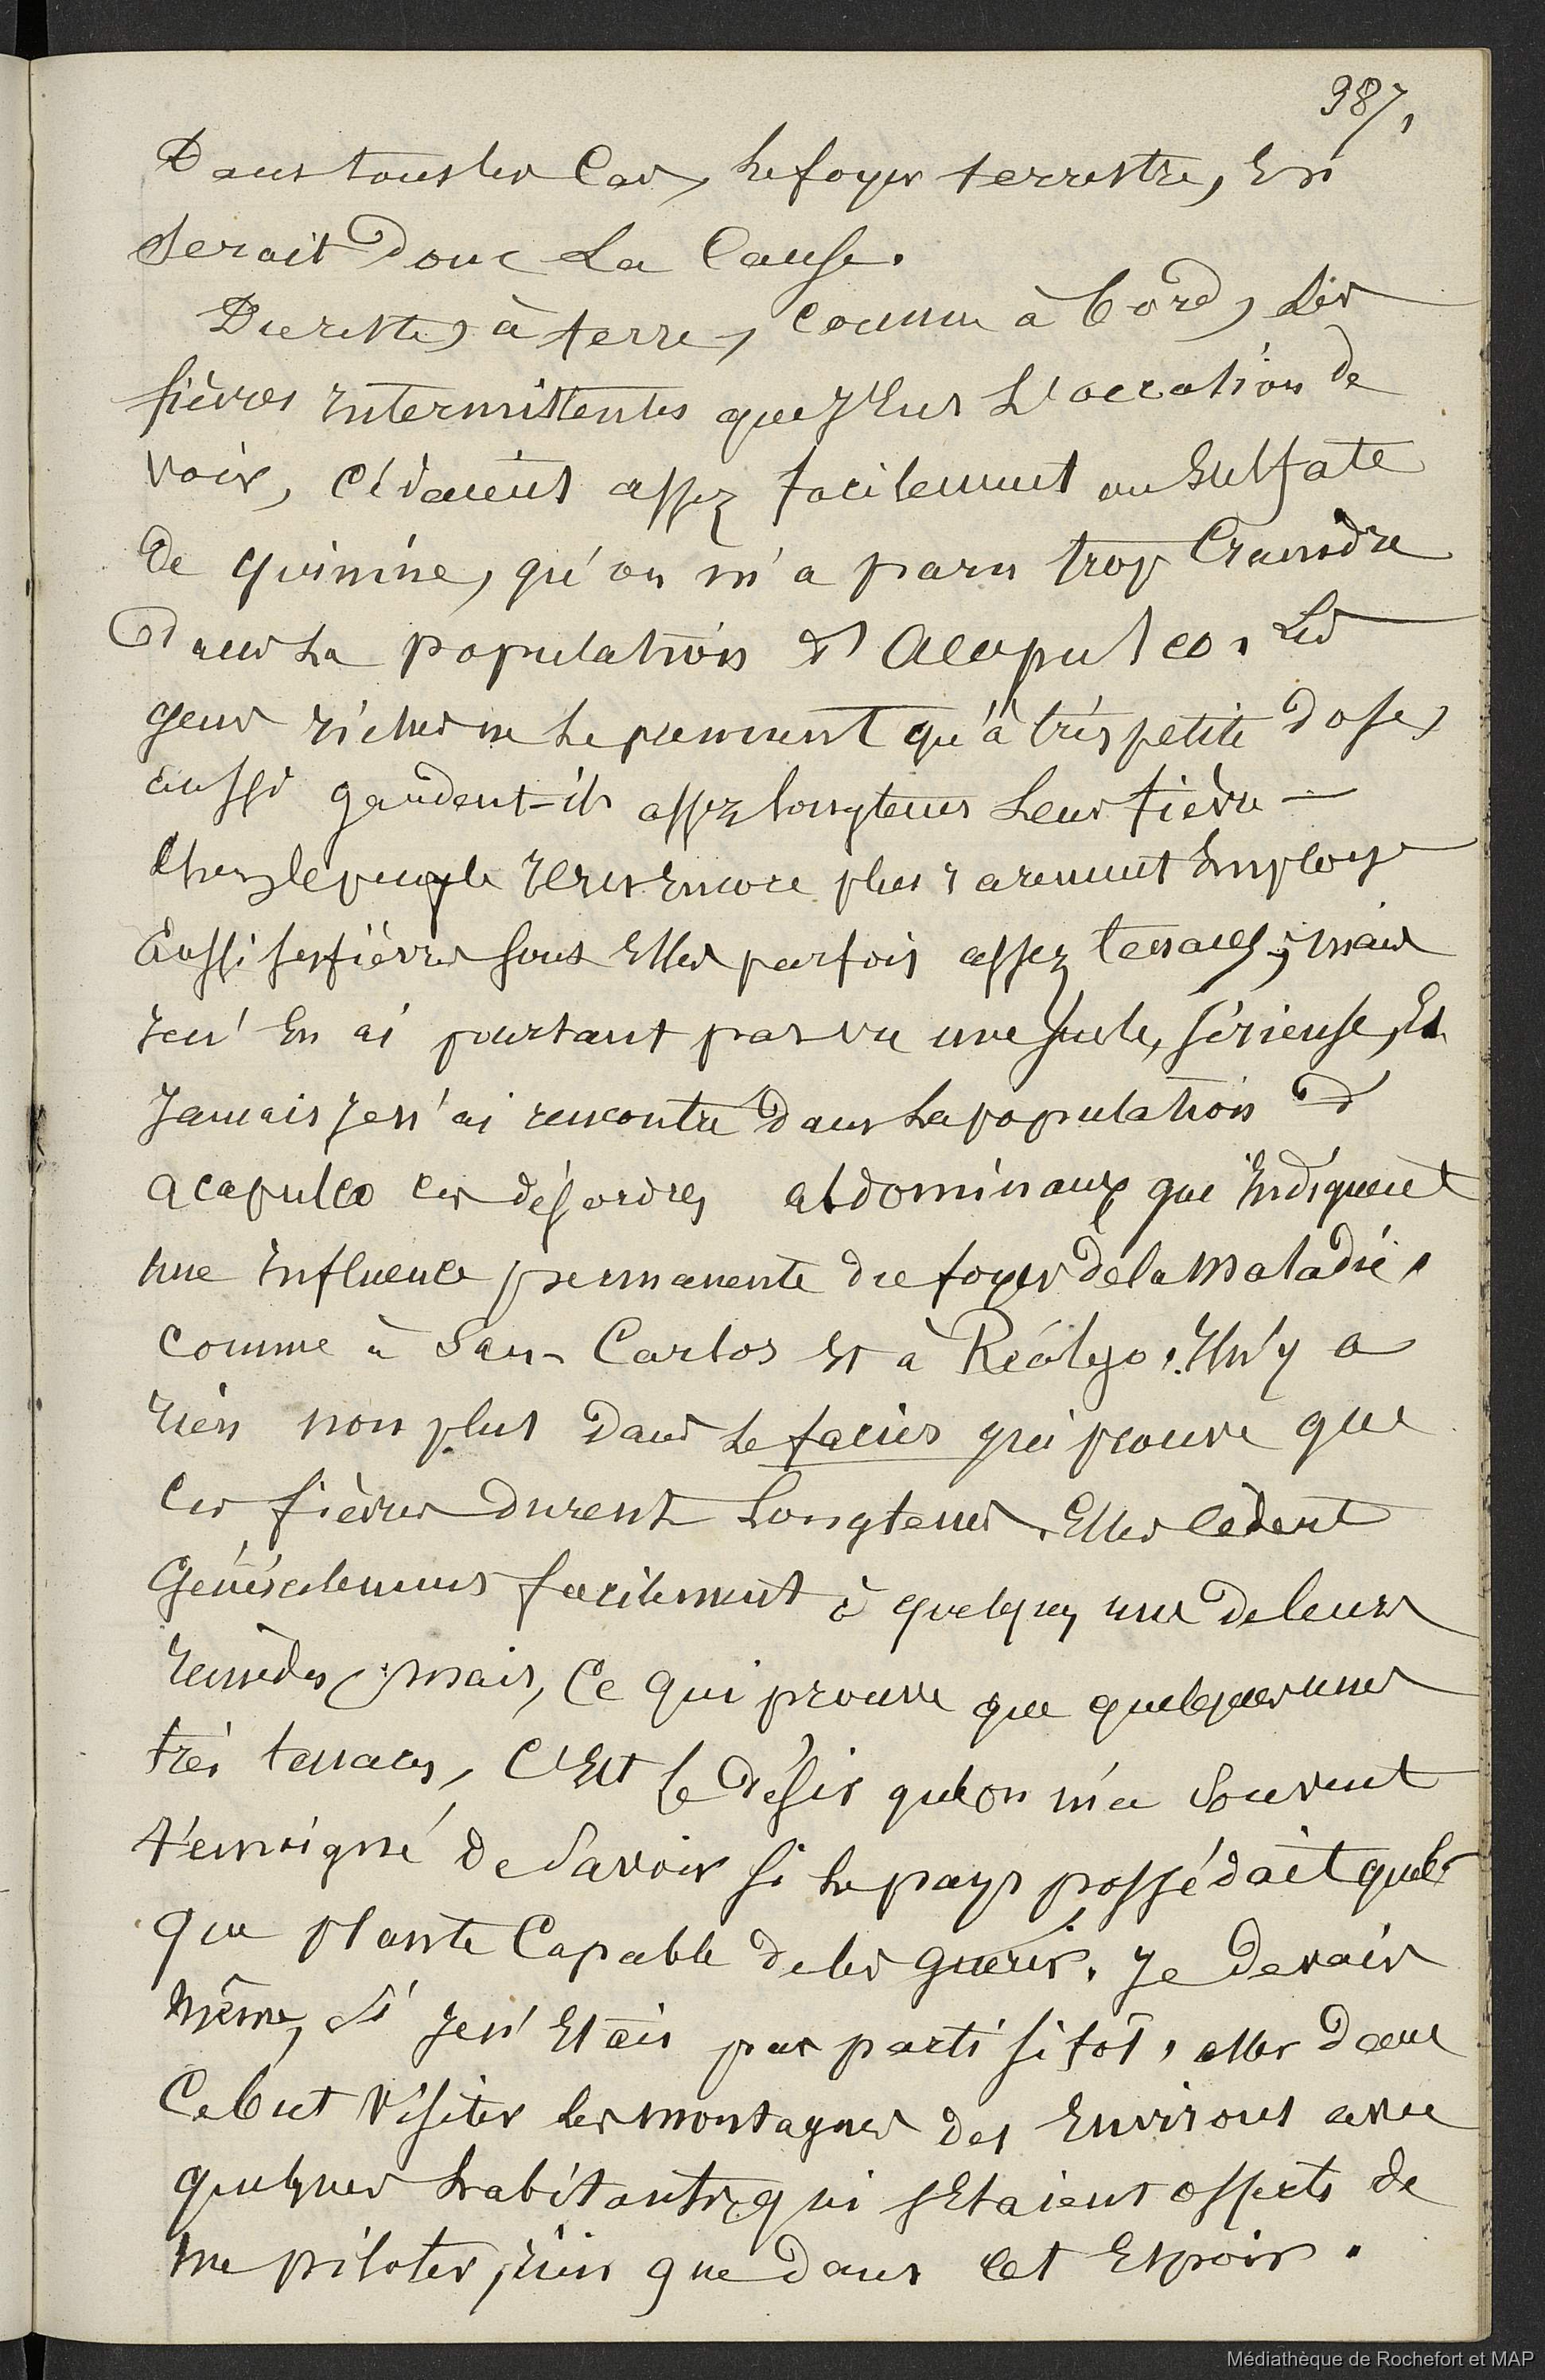 987,
Dans tous les Cas, le foyer terrestre, En
Serait Donc La Cause.
Du reste, à terre, comme à bord, Les
fièvres intermittentes que j'Eus L'occasion de
voir, cédaient assez facilement au Sulfate
De quinine, qu'on m'a paru trop Craindre
Dans La population d'Acapulco. Les
gens riches ne le prennent qu'à très petite Dose,
aussi gardent-ils assez longtems Leur fièvre —
Chez le peuple il est Encore plus rarement Employé
Aussi ses fièvres sont Elles parfois assez tenaces; mais
Je n'En ai pourtant pas vu une seule, sérieuse, Et
Jamais Je n'ai rencontré Dans La population d'
acapulco ces désordres abdominaux qui Indiquent
une Influence permanente du foyer de la Maladie,
comme à San-Carlos Et à Réalejo. Il n'y a
rien non plus Dans Le faciès qui prouve que
Ces fièvres Durent Longtems. Elles cèdent
Généralement facilement à quelques uns de leurs
remèdes; mais, Ce qui prouve que quelques unes
très tenaces, C'Est Le Désir qu'on m'a Souvent
témoigné de Savoir si Le pays possédait quel-
que plante Capable de les guérir. Je Devais
même, Si Je n'Etais pas parti sitôt, aller Dans
Ce but Visiter Les Montagnes des Environs avec
quelques habitants, qui s'Etaient offerts de
me piloter, rien que Dans Cet Espoir.
Médiathèque de Rochefort et MAP